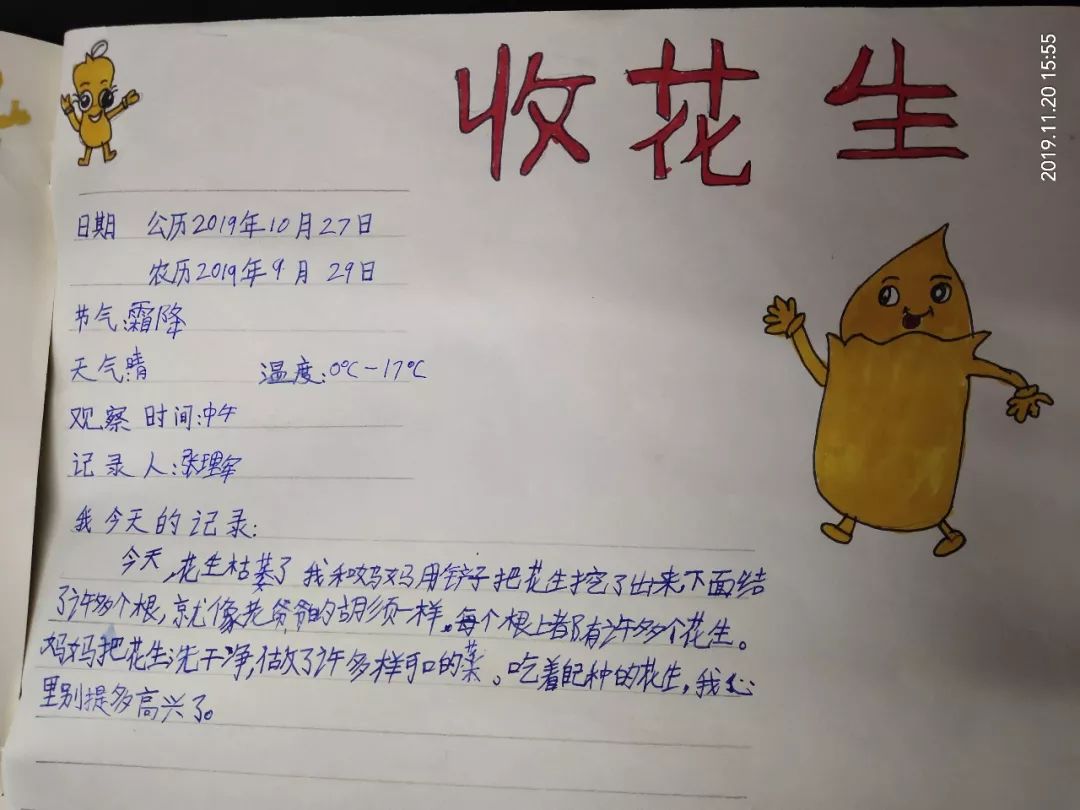 收花生
2019.11.20 15:55
日期 公历2019年10月27日
农历2019年9月29日
节气:霜降
天气:晴 温度:0℃-17℃
观察时间:中午
记录人:张理军
我今天的记录:
今天,花生枯萎了 我和妈妈用铲子把花生挖了出来,下面结
了许多个根,就像老爷爷的胡须一样。每个根上都有许多个花生。
妈妈把花生洗干净,做了许多样可口的菜。吃着自己种的花生,我心
里别提多高兴了。